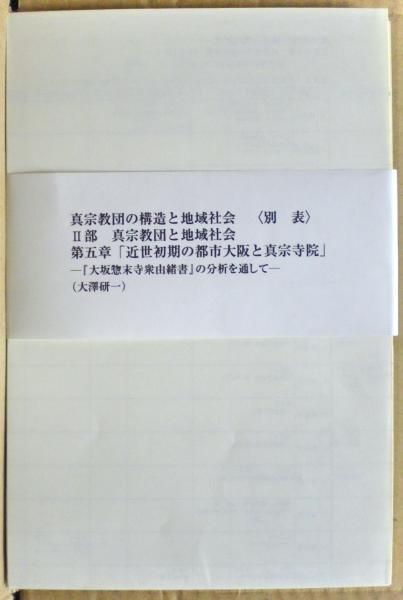 真宗教団の構造と地域社会 〈別 表〉
Ⅱ部 真宗教団と地域社会
第五章「近世初期の都市大阪と真宗寺院」
―『大坂惣末寺衆由緒書』の分析を通して―
(大澤研一)